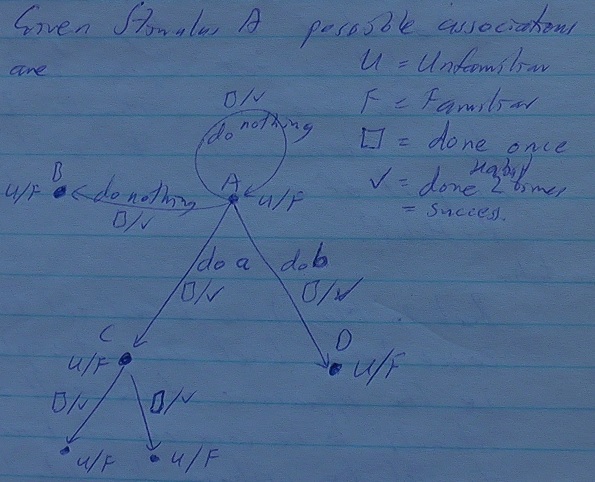 Given Stimulus A possible associations
are
U = Unfamiliar
F = Familiar
□ = done once
Habit
✓ = done 2 times
= success.
□/✓
do nothing
B
U/F
do nothing
□/✓
A
U/F
do a
□/✓
do b
□/✓
C
U/F
D
U/F
□/✓
□/✓
U/F
U/F